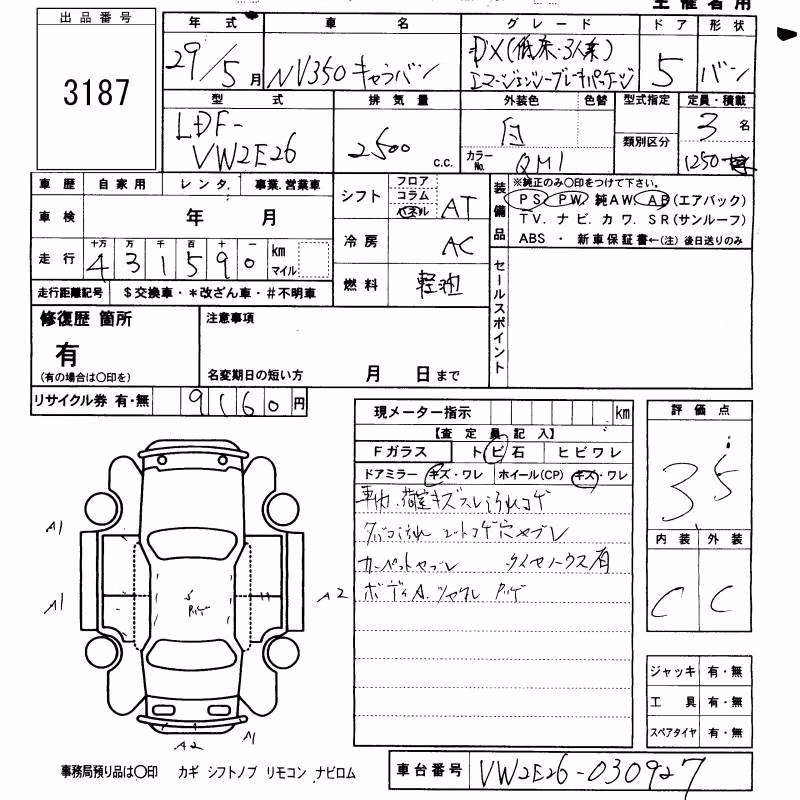 出品番号
3187
年式 車名 グレード ドア 形状
29/5月 NV350キャラバン DX(低床・3人乗) 5 バン
エマージェンシーブレーキパッケージ
型式 排気量 外装色 色替 型式指定 定員・積載
LDF-
VW2E26 2500 c.c. 白 類別区分 3名
カラーNo. QM1 1250
車歴 自家用 レンタ. 事業.営業車
車検 年 月
走行 十万 万 千 百 十 一 km
431590 マイル
走行距離記号 $交換車・*改ざん車・#不明車
シフト フロア コラム パネル AT
冷房 AC
燃料 軽油
装備品 ※純正のみ○印をつけて下さい。
PS PW 純AW AB(エアバック)
TV. ナビ. カワ. SR(サンルーフ)
ABS ・ 新車保証書←(注)後日送りのみ
セールスポイント
修復歴 箇所 注意事項
有
(有の場合は○印を) 名変期日の短い方 月 日まで
リサイクル券 有・無 9160円
現メーター指示 km
【査定員記入】
Fガラス トビ石 ヒビワレ
ドアミラー キズ・ワレ ホイール(CP) キズ・ワレ
車内.荷室キズスレ汚れコゲ
タバコ汚れ シートコゲ穴ヤブレ
カーペットヤブレ タイヤハウス有
ボディA.シャクレ
評価点
3.5
内装 外装
C C
ジャッキ 有・無
工具 有・無
スペアタイヤ 有・無
A1
A1
A2
A2
A1
事務局預り品は○印 カギ シフトノブ リモコン ナビロム
車台番号 VW2E26-030927